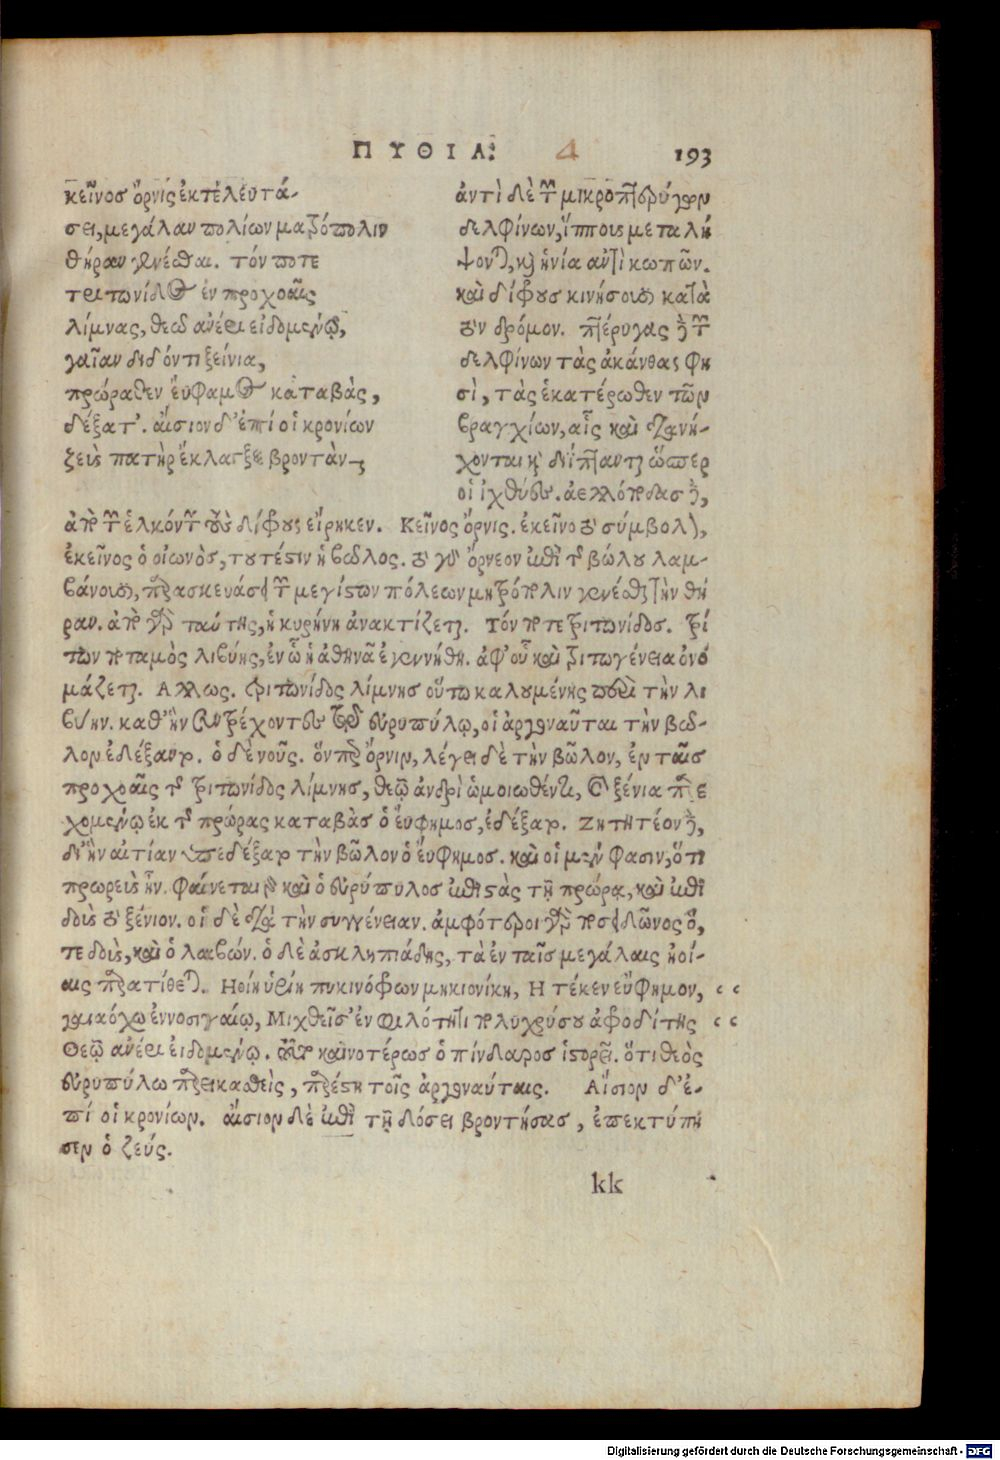 ΠΥΘΙΑ. 4 193
κεῖνος ὄρνις ἐκτελευτά-
σει, μεγάλαν πολίων ματρόπολιν
θήραν γενέσθαι. τόν ποτε
τριτωνίδος ἐν προχοαῖς
λίμνας, θεῷ ἀνέρι εἰδομένῳ,
γαῖαν διδόντι ξείνια,
πρώραθεν εὔφαμος καταβὰς,
δέξατ'. αἴσιον δ' ἐπί οἱ κρονίων
ζεὺς πατὴρ ἔκλαγξε βροντάν.
ἀντὶ δὲ τῶν μικροπτερύγων
δελφίνων, ἵπποις μεταλή
ψονται, καὶ ἡνία ἀντὶ κωπῶν.
καὶ δίφρους κινήσουσι κατὰ
τὸν δρόμον. πτέρυγας δὲ τῶν
δελφίνων τὰς ἀκάνθας φη
σὶ, τὰς ἑκατέρωθεν τῶν
βραγχίων, αἷς καὶ διανή-
χονται καὶ διίπτανται ὥσπερ
οἱ ἰχθύες. ἀελλόποδας δὲ,
ἀπὸ τῶν ἑλκόντων τοὺς δίφρους εἴρηκεν. Κεῖνος ὄρνις. ἐκεῖνο τὸ σύμβολον,
ἐκεῖνος ὁ οἰωνὸς, τουτέστιν ἡ βῶλος. τὸ γὰρ ὄρνεον ἐπὶ τῆς βώλου λαμ-
βάνουσι, παρασκευάσει τῶν μεγίστων πόλεων μητρόπολιν γενέσθαι τὴν θή
ραν. ἀπὸ γὰρ ταύτης, ἡ κυρήνη ἀνακτίζεται. Τόν ποτε τριτωνίδος. τρί
των ποταμὸς λιβύης, ἐν ᾧ ἡ ἀθηνᾶ ἐγεννήθη. ἀφ' οὗ καὶ τριτογένεια ὀνο
μάζεται. Αλλως. τριτωνίδος λίμνης οὕτω καλουμένης περὶ τὴν λι
βύην. καθ' ἣν συντρέχοντες τῷ εὐρυπύλῳ, οἱ ἀργοναῦται τὴν βῶ-
λον ἐδέξαντο. ὁ δὲ νοῦς. ὅντινα ὄρνιν, λέγει δὲ τὴν βῶλον, ἐν ταῖς
προχοαῖς τῆς τριτωνίδος λίμνης, θεῷ ἀνδρὶ ὡμοιωθέντι, καὶ ξένια παρε
χομένῳ ἐκ τῆς πρώρας καταβὰς ὁ εὔφημος, ἐδέξατο. Ζητητέον δὲ,
δι' ἣν αἰτίαν ὑπεδέξατο τὴν βῶλον ὁ εὔφημος. καὶ οἱ μέν φασιν, ὅτι
πρωρεὺς ἦν. φαίνεται γὰρ καὶ ὁ εὐρύπυλος ἐπιστὰς τῇ πρώρᾳ, καὶ ἐπι
δοὺς τὸ ξένιον. οἱ δὲ διὰ τὴν συγγένειαν. ἀμφότεροι γὰρ ποσειδῶνος ὅ,
τε δοὺς, καὶ ὁ λαβών. ὁ δὲ ἀσκληπιάδης, τὰ ἐν ταῖς μεγάλαις ἠοί-
αις παρατίθεται. Ηοίη ὑρίη πυκινόφρων μηκιονίκη, Η τέκεν εὔφημον,
γαιαόχῳ ἐννοσιγαίῳ, Μιχθεῖσ' ἐν φιλότητι πολυχρύσου ἀφροδίτης
Θεῷ ἀνέρι εἰδομένῳ. καινοτέρως ὁ πίνδαρος ἱστορεῖ. ὅτι θεὸς
εὐρυπύλῳ παρεικασθεὶς, παρέστη τοῖς ἀργοναύταις. Αἴσιον δ' ἐ-
πί οἱ κρονίων. αἴσιον δὲ ἐπὶ τῇ δόσει βροντήσας, ἐπεκτύπη
σεν ὁ ζεύς.
kk
Digitalisierung gefördert durch die Deutsche Forschungsgemeinschaft - DFG